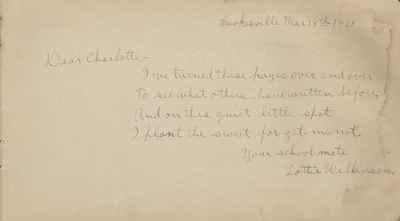 Mar 19th
Dear Charlotte-
I've turned these pages over and over
To see what others have written before,
And on this quiet little spot
I plant the sweet for-get-me-not.
Your school mate
Lottie Wilkinson